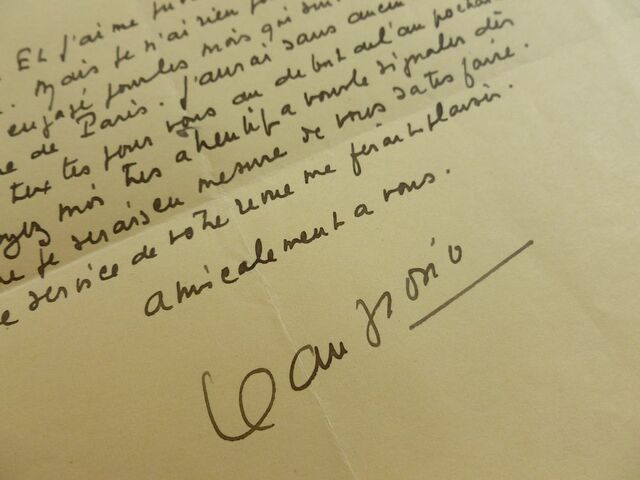 Et j'ai me
. Mais je n'ai rien
engagé pour les mois qui
de Paris. J'aurai sans aucun
textes pour vous au début de l'an prochain
moi très attentif à vous le signaler dès
je serais en mesure de vous satisfaire.
service de votre revue me ferait plaisir.
amicalement à vous.
Jean